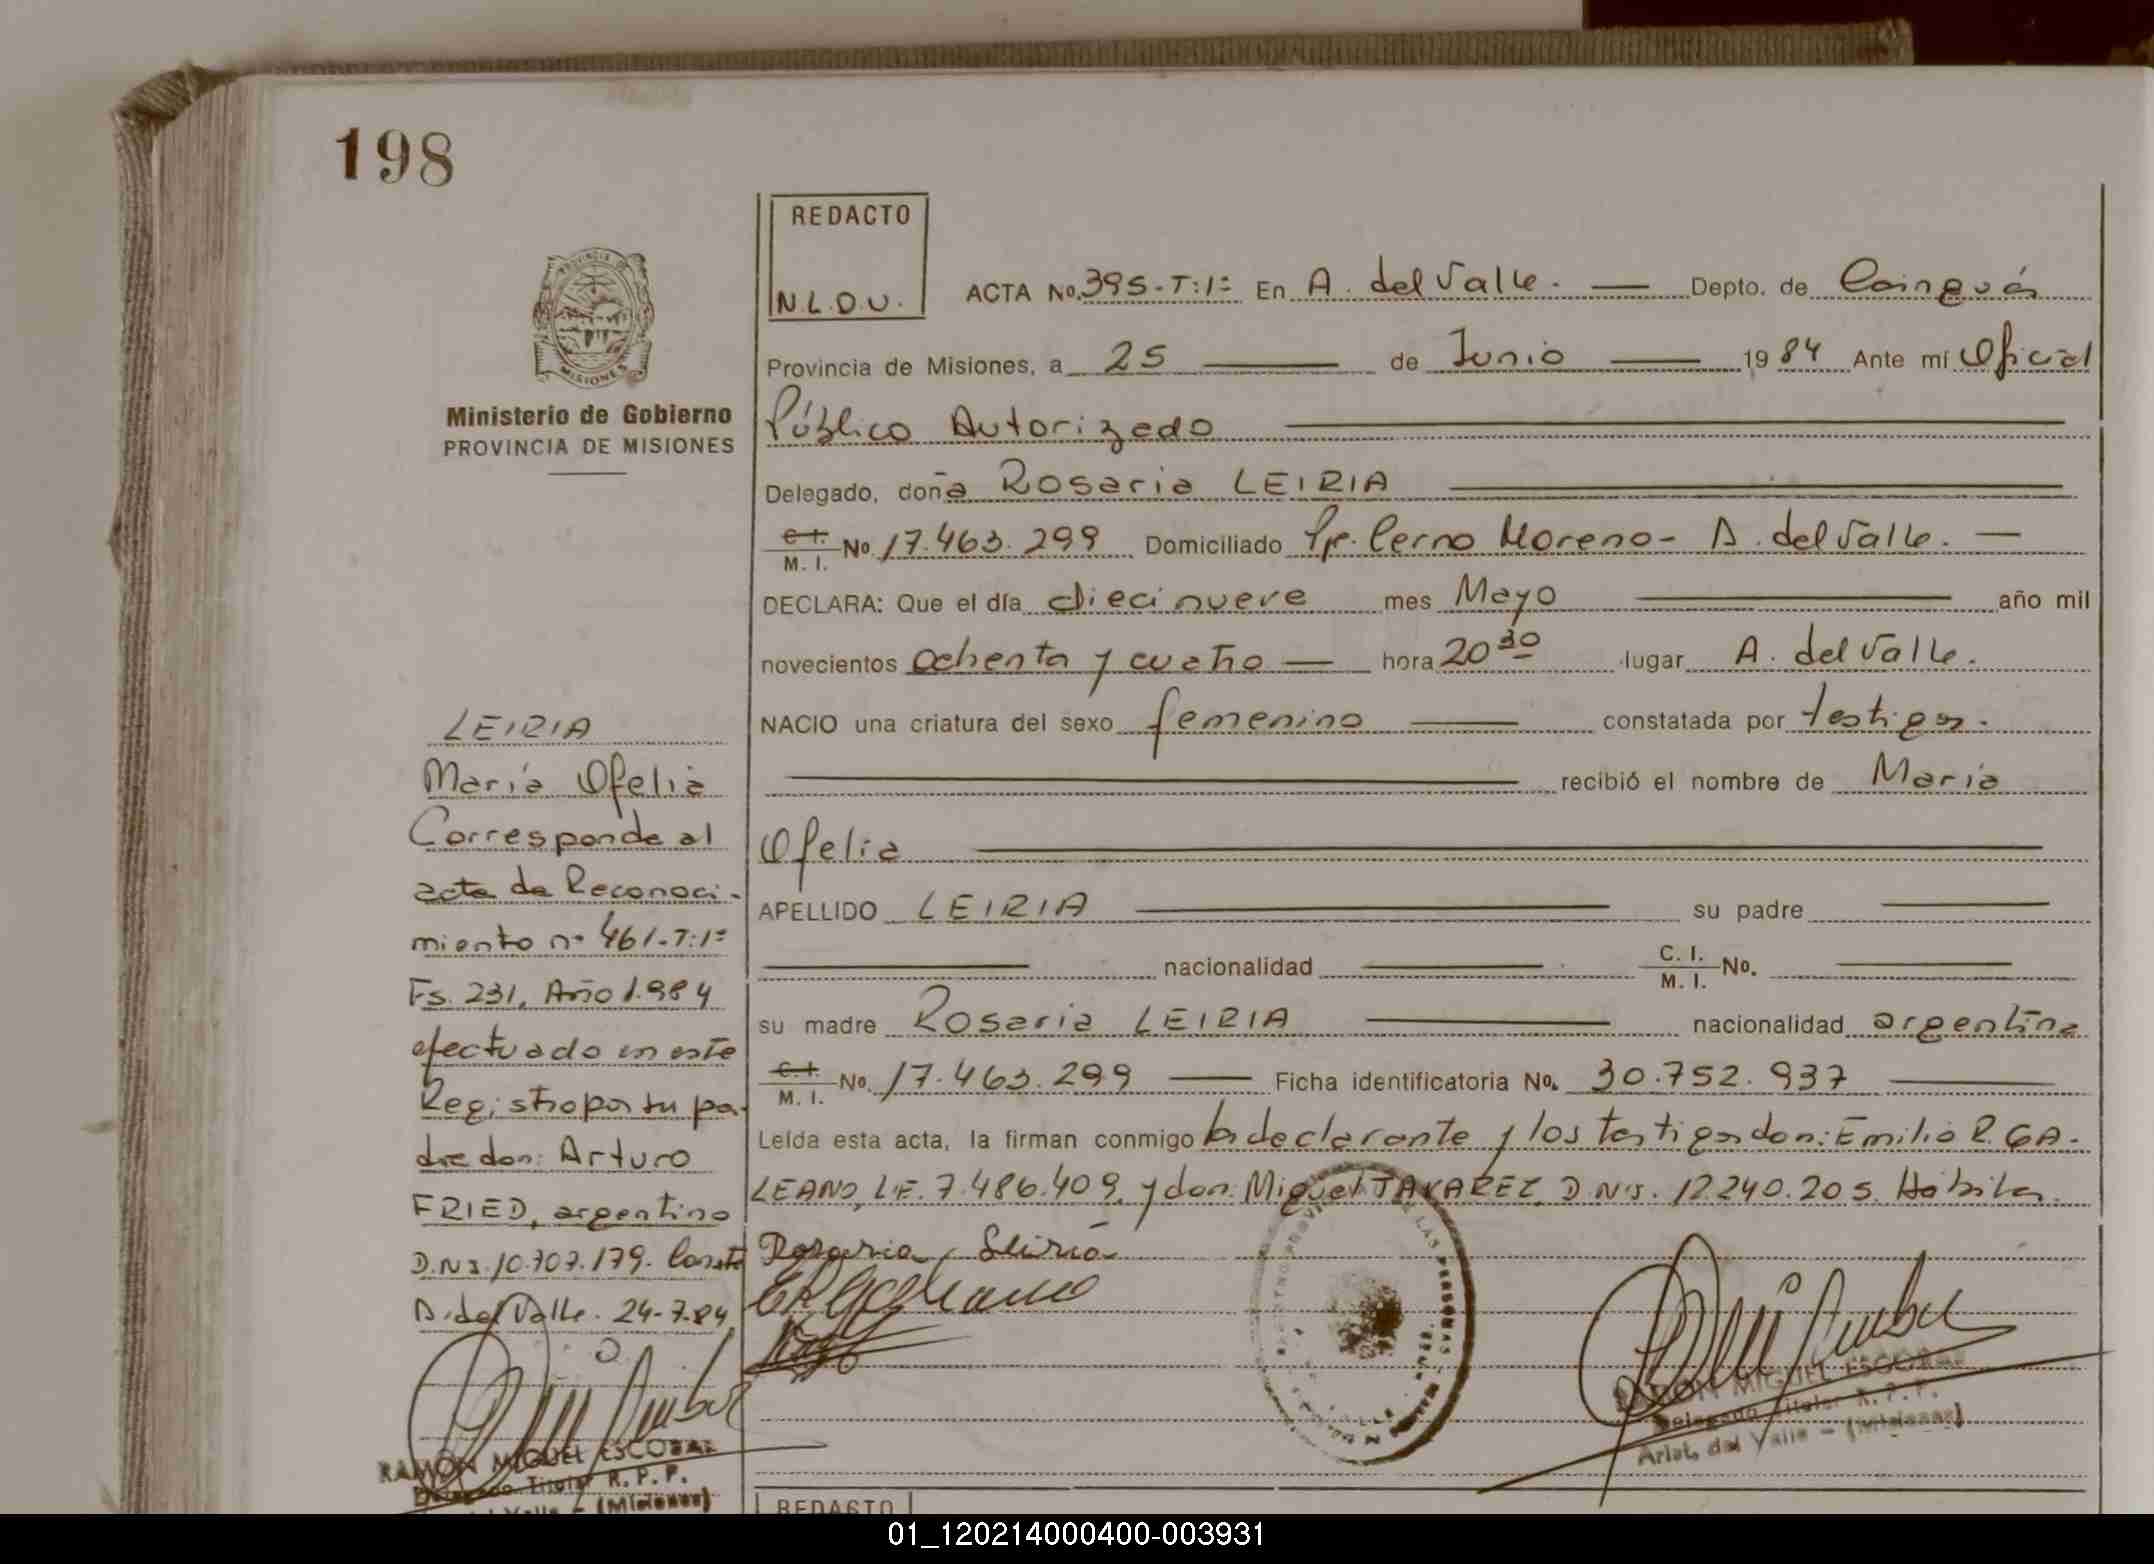 198
REDACTO
N.L.D.U.
ACTA No. 395-T:1º En A. del Valle. Depto. de Cainguás
Provincia de Misiones, a 25 de Junio 1984 Ante mí Oficial
Público Autorizado
Delegado, doña Rosaria LEIRIA
C. I. M. I. No 17.463.299 Domiciliado Pje. Cerno Moreno - A. del Valle.
DECLARA: Que el día diecinueve mes Mayo año mil
novecientos ochenta y cuatro hora 20 30 lugar A. del Valle.
NACIO una criatura del sexo femenino constatada por testigos.
recibió el nombre de María
Ofelia
APELLIDO LEIRIA su padre
nacionalidad C. I. M. I. No.
su madre Rosaria LEIRIA nacionalidad argentina
C. I. M. I. No. 17.463.299 Ficha identificatoria No. 30.752.937
Leída esta acta, la firman conmigo la declarante y los testigos don: Emilio R. GA-
LEANO, L.E. 7.486.409, y don: Miguel TAVAREZ D.N.I. 12.240.205. Hábiles.
Rosaria Leiria
RAMON MIGUEL ESCOBAR
Delegado Titular R. P. P.
Arist. del Valle - (Misiones)
PROVINCIA DE
MISIONES
Ministerio de Gobierno
PROVINCIA DE MISIONES
LEIRIA
María Ofelia
Corresponde al
acta de Reconoci-
miento nº 461-T:1º
Fs. 231, Año 1.984
efectuado en este
Registro por su pa-
dre don: Arturo
FRIED, argentino
D.N.I. 10.707.179. Conste
A. del Valle. 24-7-84
RAMON MIGUEL ESCOBAR
Delegado Titular R. P. P.
Valle - (Misiones)
REDACTO
01_120214000400-003931